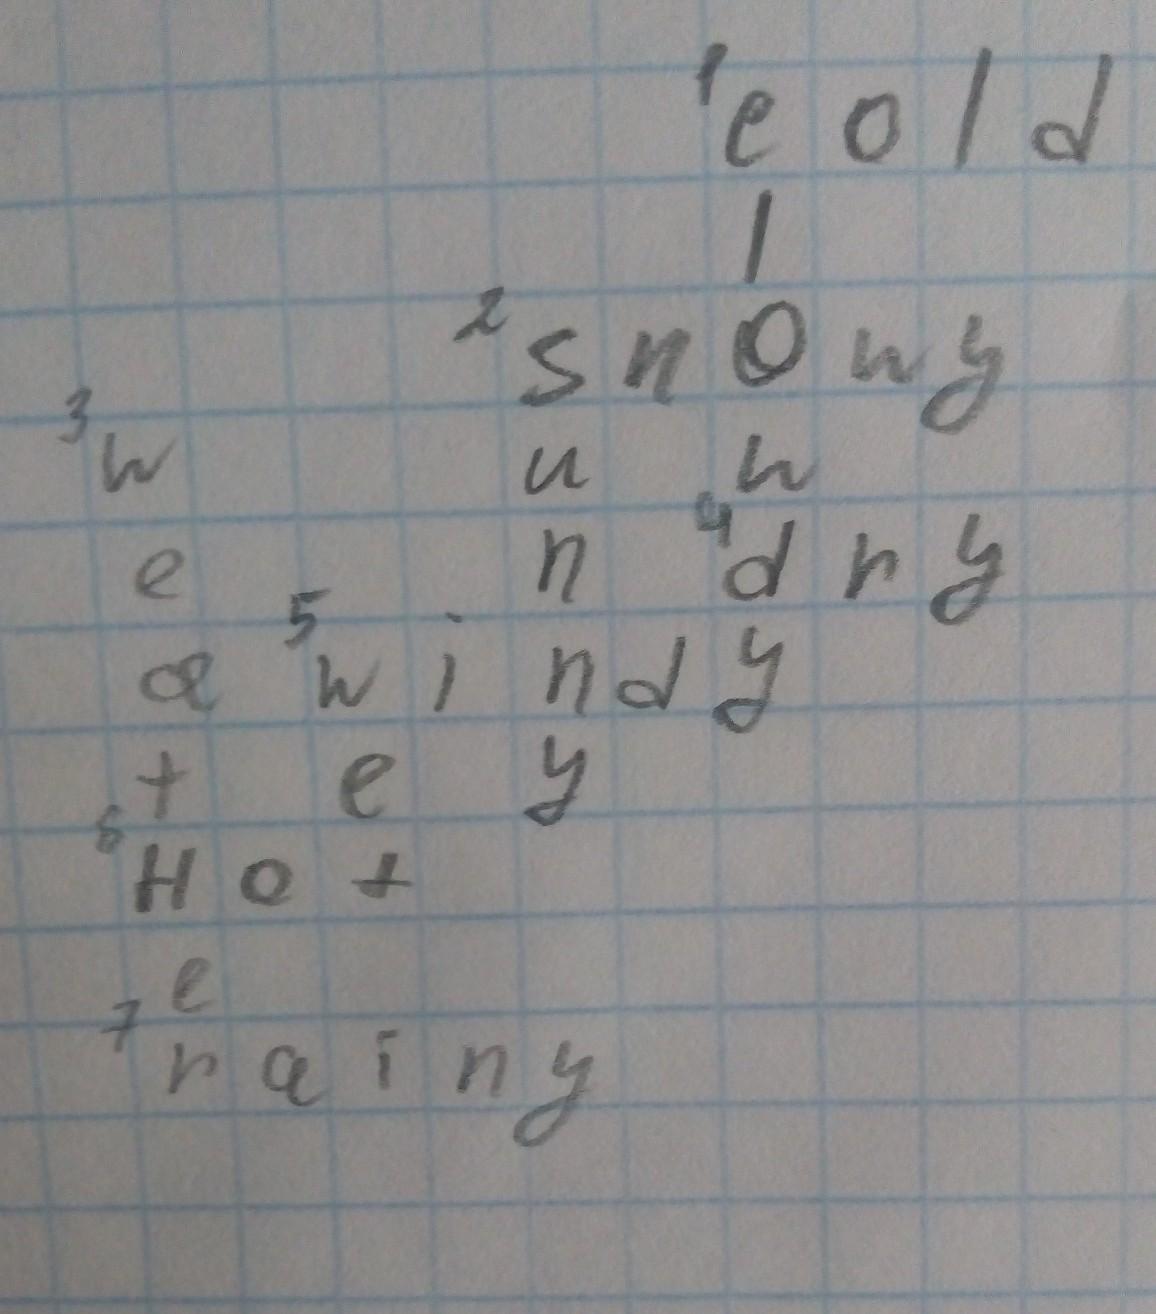 1 cold
l
2 snowy
3 w u w
e n 4 dry
a 5 windy
t e y
6 Hot
e
7 rainy